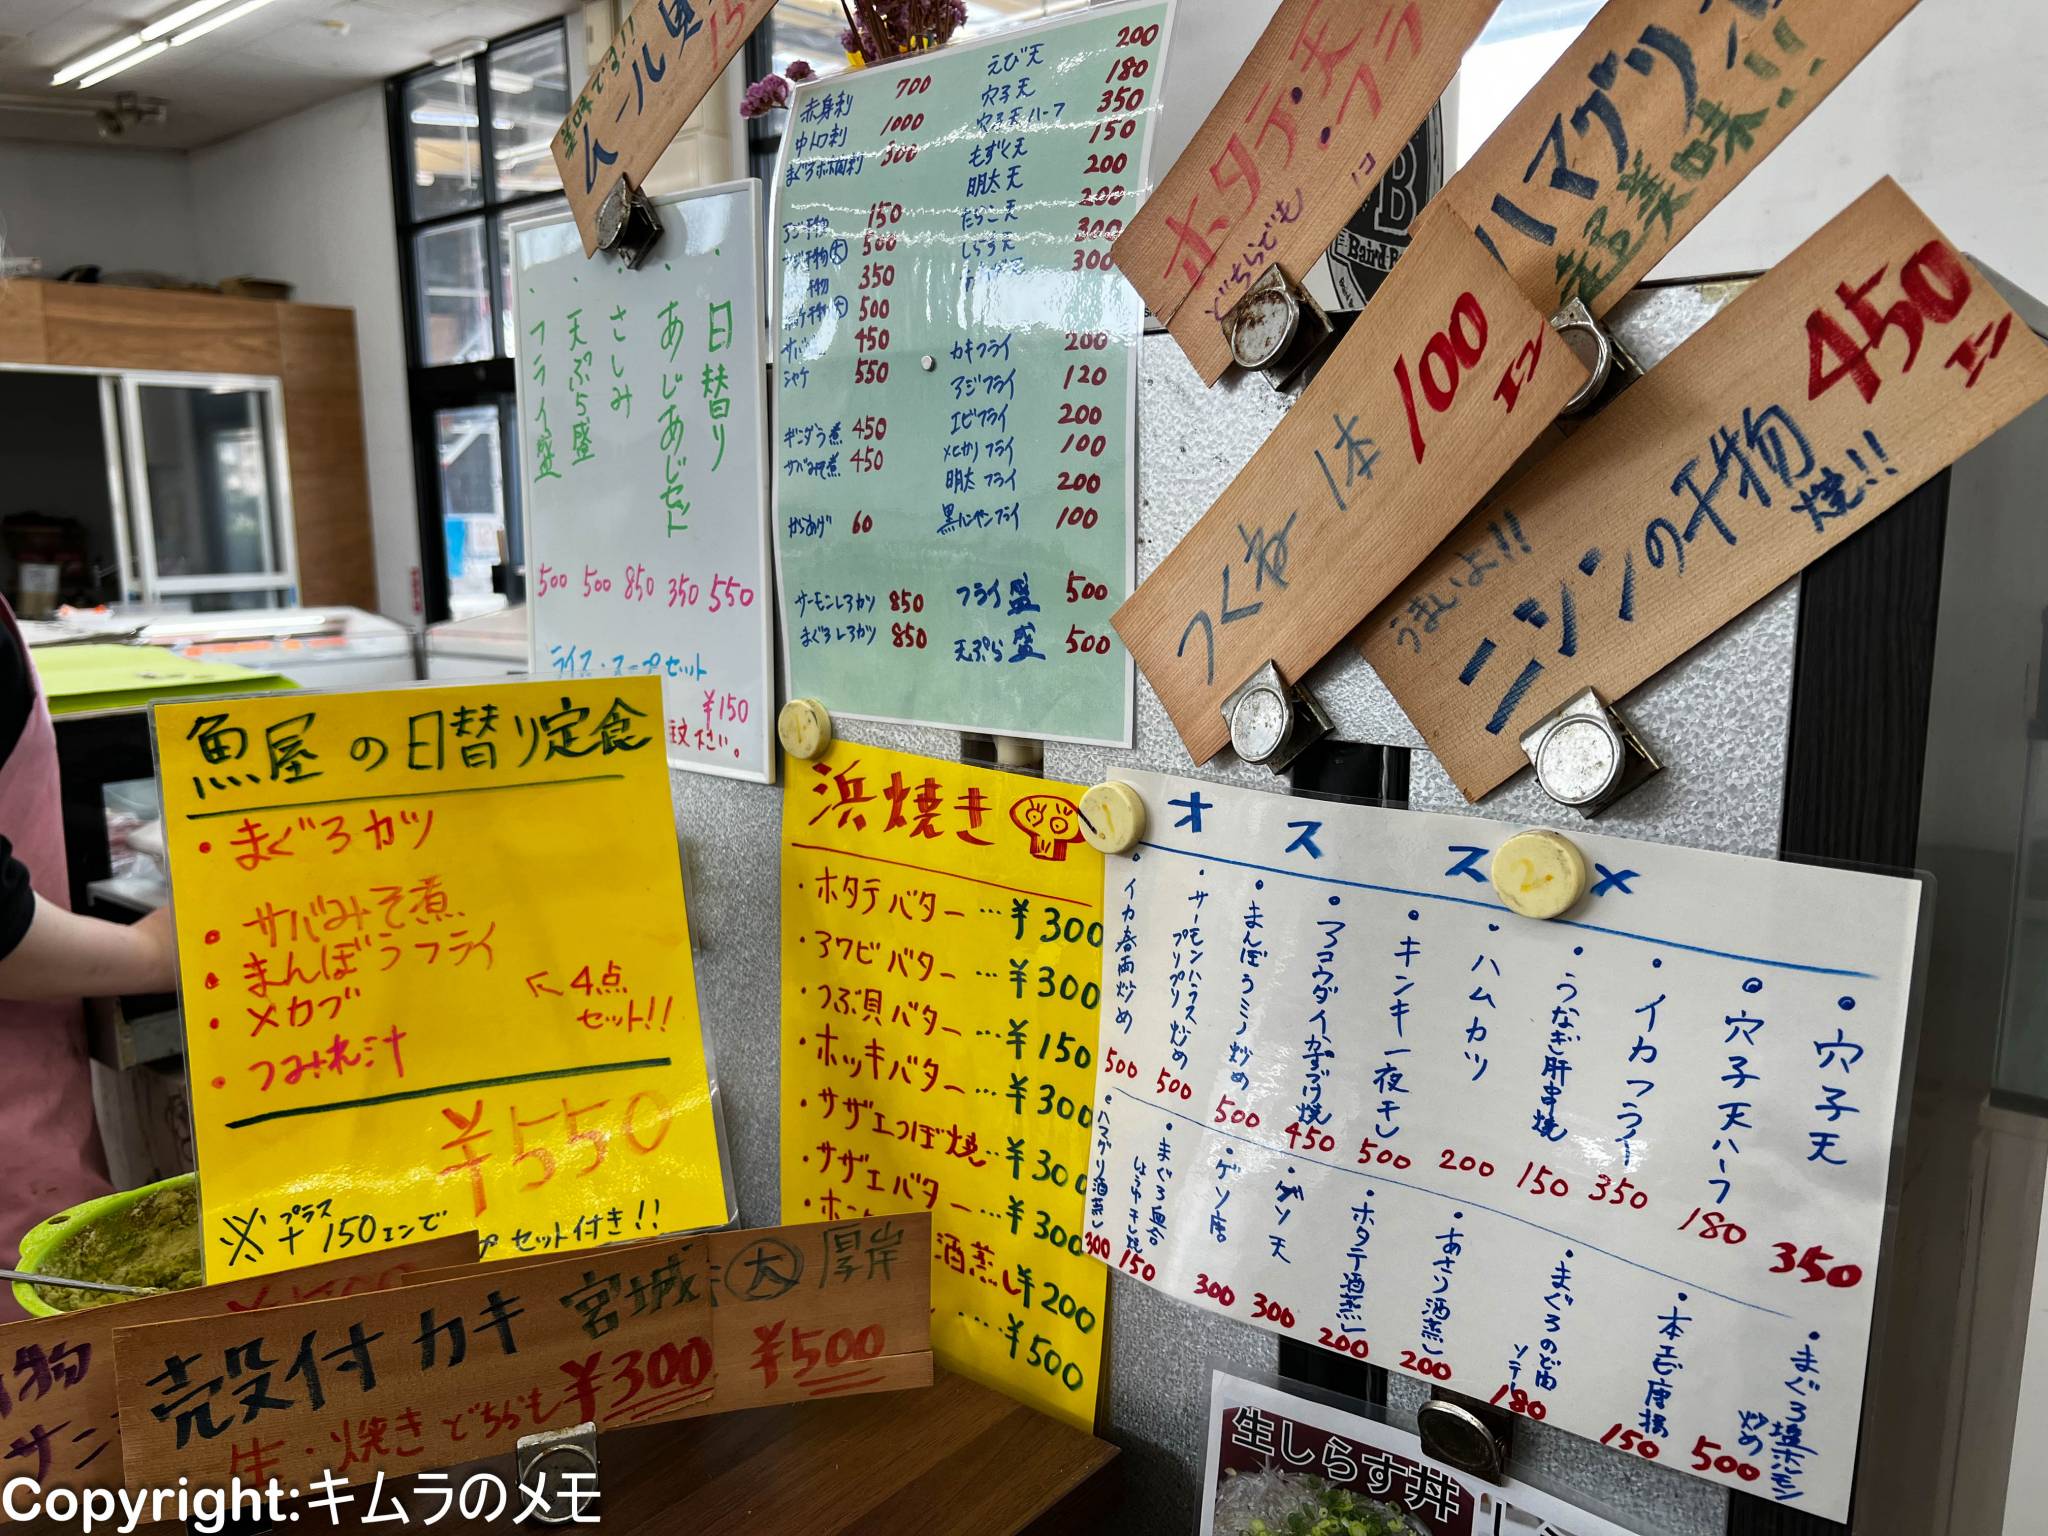 ムール貝
ホタテ・天
・フラ
どちらでも
1コ
ハマグリ
超美味!!
つく者 1本 100
エン
うまいよ!!
ニシンの干物 450
エン
焼!!
赤身刺 700
中トロ刺 1000
300
150
500
350
500
450
シャケ 550
ギンダラ煮 450
サバみそ煮 450
からあげ 60
サーモンレアカツ 850
まぐろレアカツ 850
えび天 200
穴子天 180
350
もずく天 150
明太天 200
たらこ天 200
しらす天 300
300
カキフライ 200
アジフライ 120
エビフライ 200
メヒカリフライ 100
明太フライ 200
黒はんぺんフライ 100
フライ盛 500
天ぷら盛 500
・日替り 550
・あじあじセット 350
・さしみ 850
・天ぷら盛 500
・フライ盛 500
ライス・スープセット
¥150
魚屋の日替り定食
・まぐろカツ
・サバみそ煮
・まんぼうフライ
・メカブ
・つみれ汁
↖4点
セット!!
¥550
※プラス
+150エンで
セット付き!!
浜焼き
・ホタテバター…¥300
・アワビバター…¥300
・つぶ貝バター…¥150
・ホッキバター…¥300
・サザエつぼ焼…¥300
・サザエバター…¥300
酒蒸し¥200
…¥500
オススメ
・穴子天 350
・穴子天ハーフ 180
・イカフライ 350
・うなぎ肝串焼 150
・ハムカツ 200
・キンキ一夜干し 500
・アコウダイかすづけ焼 450
・まんぼうミノ炒め 500
・サーモンハラス炒め
プリプリ 500
・イカ春雨炒め 500
・まぐろ塩ホルモン
炒め 500
・本エビ唐揚 150
・まぐろのど肉
ソテー 180
・あさり酒蒸し 200
・ホタテ酒蒸し 200
・ゲソ天 300
・ゲソ唐 300
・まぐろ血合
しょうゆ干し焼 150
・ハマグリ酒蒸し 300
殻付カキ 宮城 大 厚岸
生・焼きどちらも¥300 ¥500
生しらす丼
Copyright:キムラのメモ